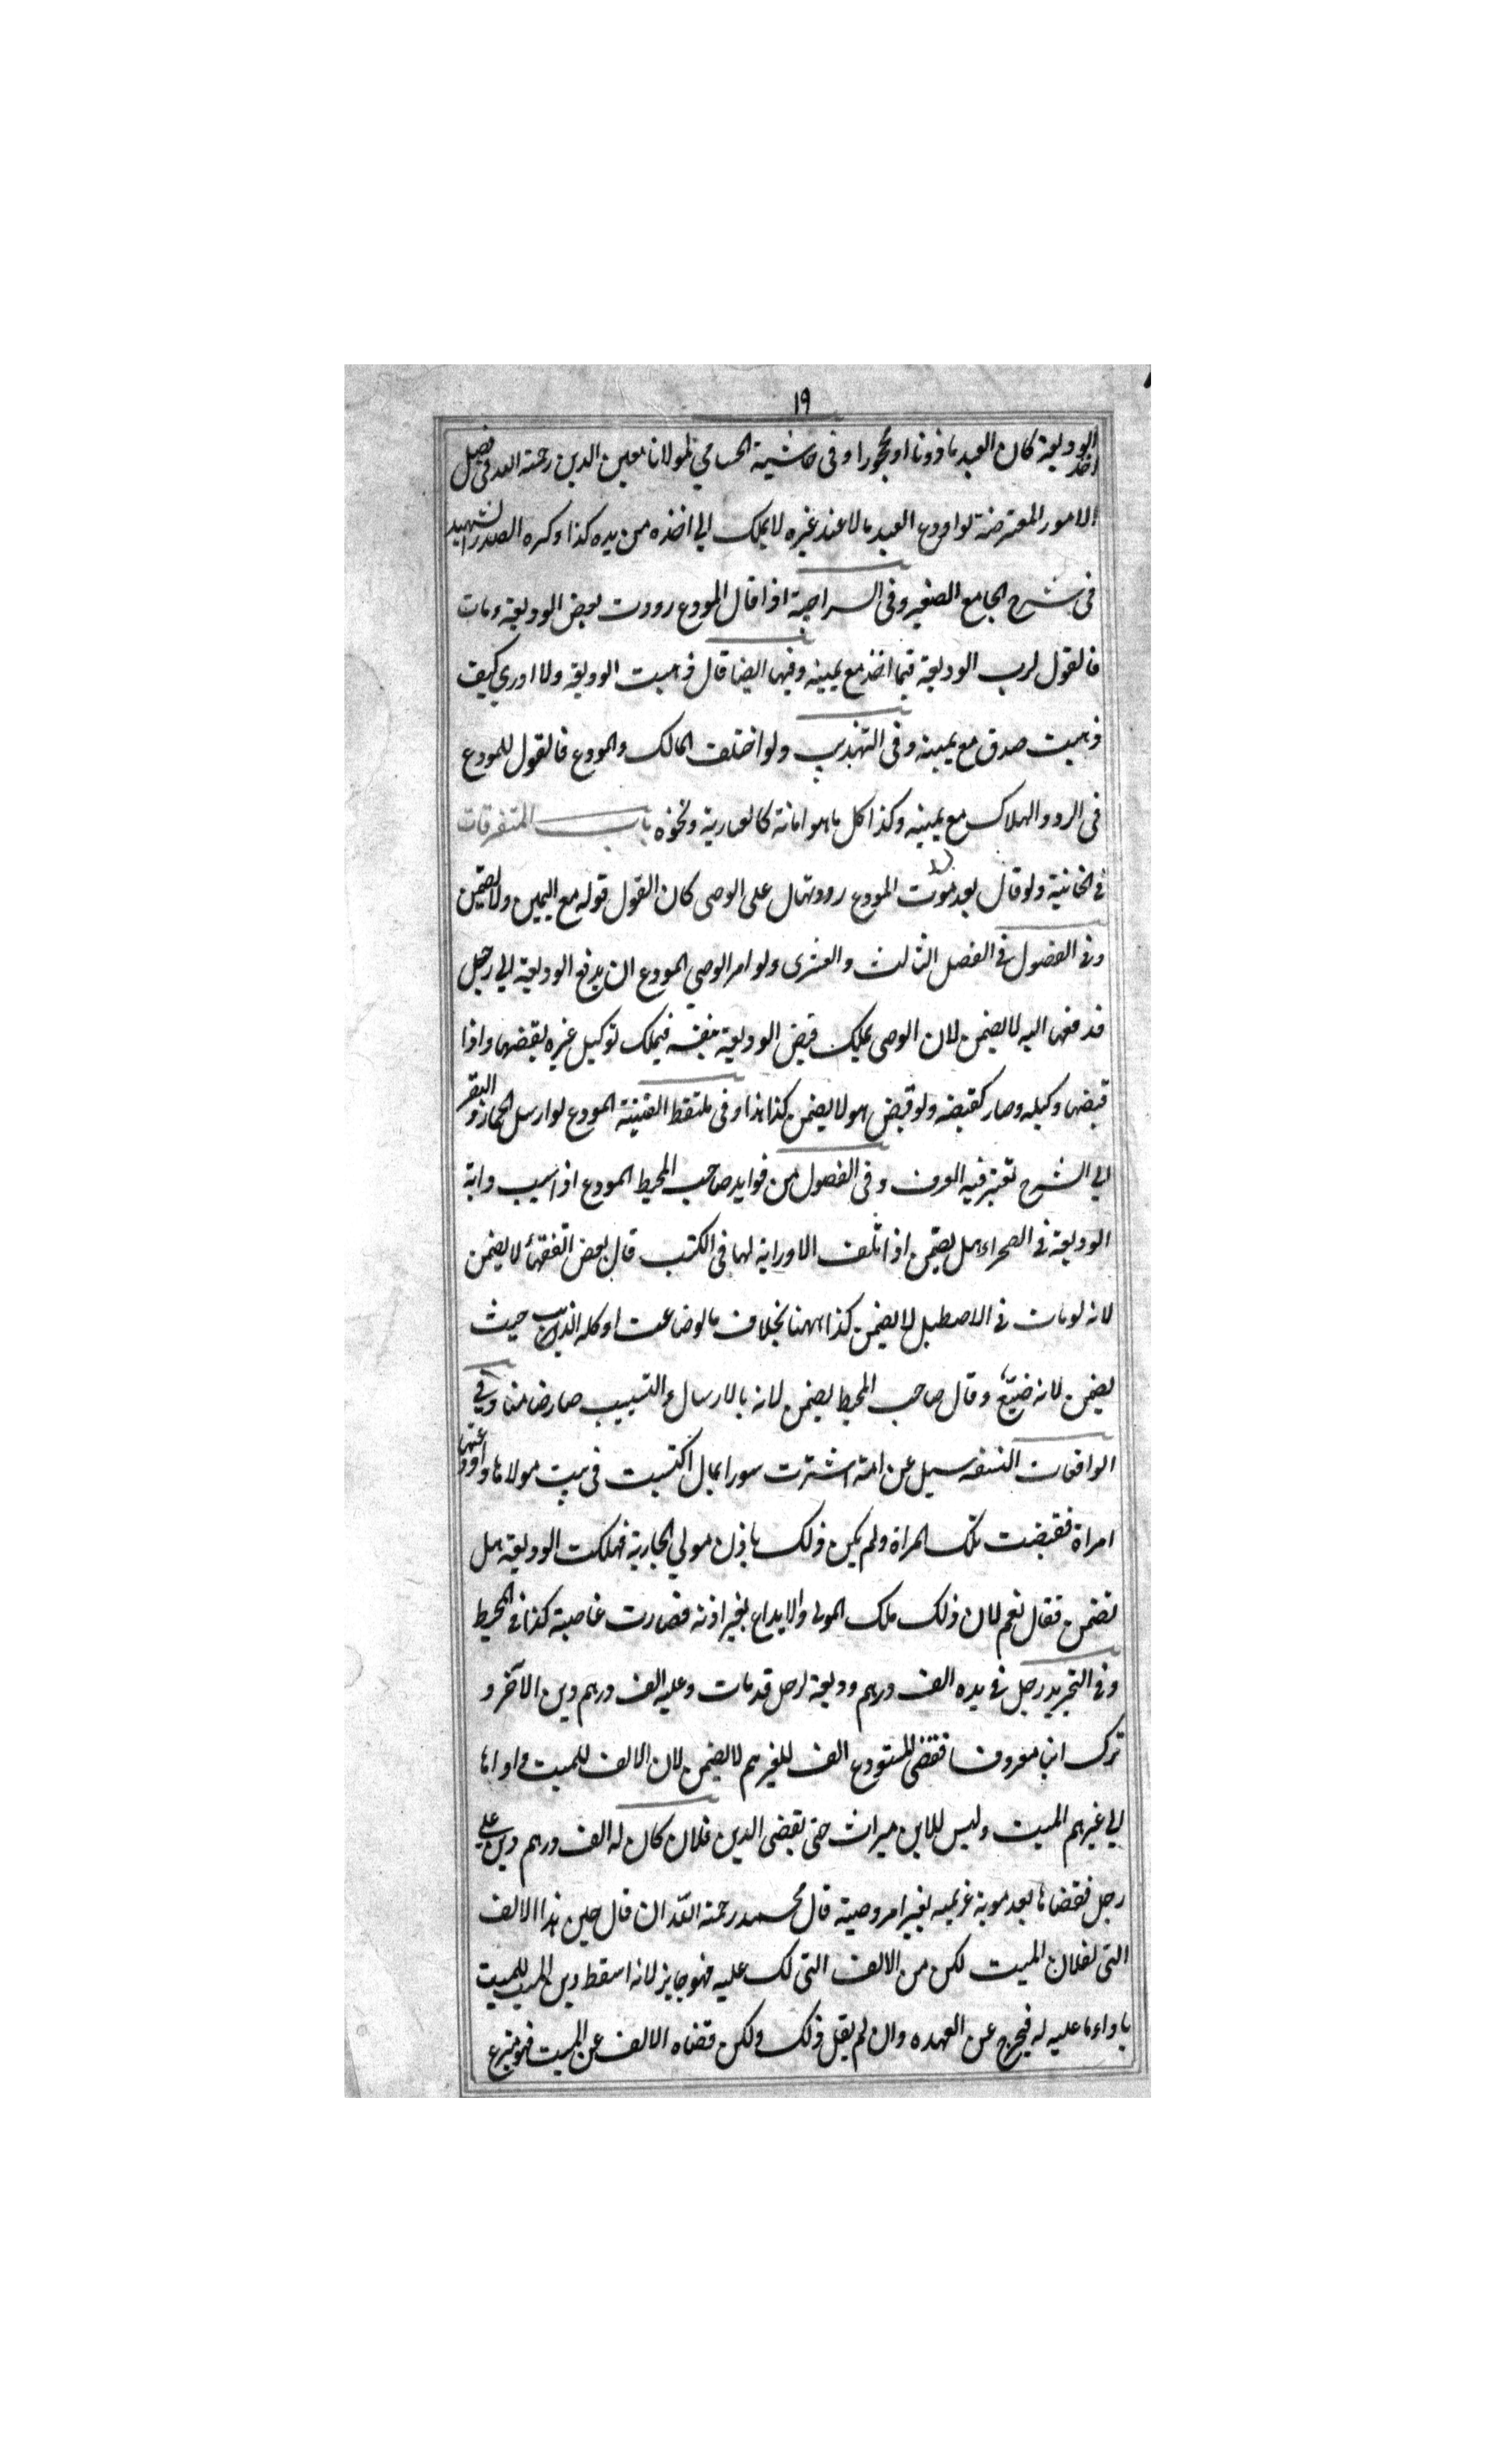 ١٩
اخذ الوديعة كان العبد ماذونا او محجورا وفى حاشية الحسامي لمولانا معين الدين رحمة الله فى فصل
الامور المعترضة لو اودع العبد مالا عند غيره لا يملك الي اخذه من يده كذا ذكره الصدر الشهيد
فى شرح الجامع الصغير وفى السراجية اذا قال المودع رددت بعض الوديعة ومات
فالقول لرب الوديعة فيما اخذ مع يمينه وفيها ايضا قال ذهبت الوديعة ولا ادري كيف
ذهبت صدق مع يمينه وفى التهذيب ولو اختلف المالك والمودع فالقول للمودع
فى الرد والهلاك مع يمينه وكذا كل ما هو امانة كالعارية ونحوه باب المتفرقات
فى الخانية ولو قال بعد موت المودع رددتها على الوصى كان القول قوله مع اليمين ولا يضمن
وفى الفصول فى الفصل الثالث والعشرى ولو امر الوصي المودع ان يدفع الوديعة الي رجل
فدفعها اليه لا يضمن لان الوصى يملك قبض الوديعة بنفسه فيملك توكيل غيره بقبضها واذا
قبضها وكيله وصار كقبضه ولو قبض هو لا يضمن كذا هذا وفى ملتقط القنية المودع لو ارسل الحمار والبقر
الي السرح تعتبر فيه العرف وفى الفصول من فوايد صاحب المحيط المودع اذا سيب دابة
الوديعة فى الصحراء هل يضمن اذا تلف الا وراية لها فى الكتب قال بعض الفقهاء لا يضمن
لانه لو مات فى الاصطبل لا يضمن كذا ههنا بخلاف ما لو ضاعت او كله الذيب حيث
يضمن لانه ضيّع وقال صاحب المحيط يضمن لانه بالارسال والتسييب صار ضامنا وفى
الواقعات النسفه سيل عن امة اشترت سورا بمال اكتسبت فى بيت مولاها واودعتها
امراة فقبضت تلك المراة ولم يكن ذلك باذن مولي الجارية فهلكت الوديعة هل
تضمن فقال نعم لان ذلك ملك المولى والايداع بغير اذنه فصارت غاصبة كذا فى المحيط
وفى التجريد رجل فى يده الف درهم وديعة لرجل قد مات وعليه الف درهم دين الآخر و
ترك ابنا معروفا فقضى المستودع الف للغريم لا يضمن لان الالف للميت واداها
الي غريم الميت وليس للابن ميراث حتى يقضى الدين فلان كان له الف درهم دين على
رجل فقضاها بعد موته غريمه بغير امر وصيته قال محمد رحمة الله ان قال حين هذا الالف
التى لفلان الميت لكن من الالف التى لك عليه فهو جايز لانه اسقط دين الميت للميت
باداء ما عليه له فيخرج عن العهده وان لم يقل ذلك ولكن قضاه الالف عن الميت فهو متبرع